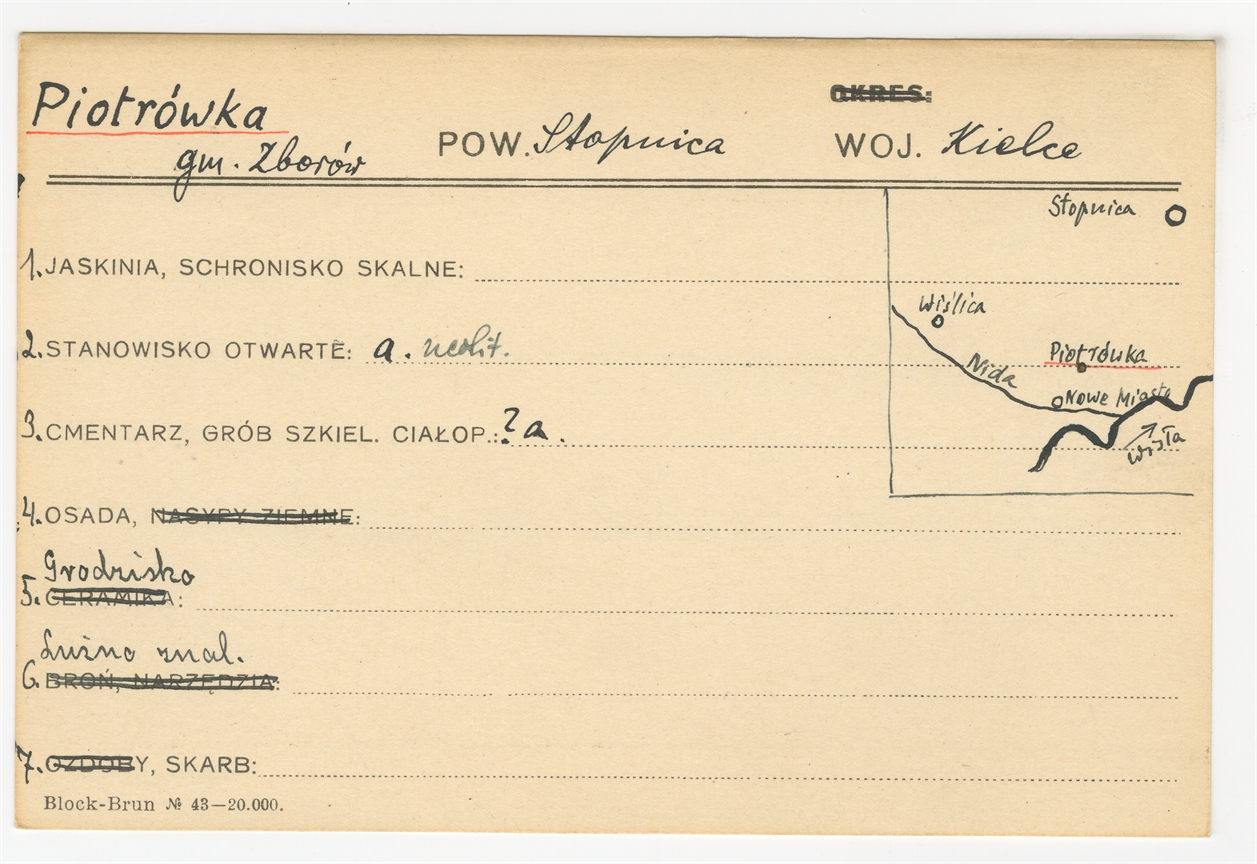 Piotrówka
OKRES:
gm. Zborów POW. Stopnica WOJ. Kielce
Stopnica
1. JASKINIA, SCHRONISKO SKALNE:
Wiślica
2. STANOWISKO OTWARTE: a. neolit.
Piotrówka
Nida
Nowe Miasto
3. CMENTARZ, GRÓB SZKIEL. CIAŁOP.: ? a.
Wisła
4. OSADA, NASYPY ZIEMNE:
Grodzisko
5. CERAMIKA:
Luźno znal.
6. BROŃ, NARZĘDZIA:
7. OZDOBY, SKARB:
Block-Brun № 43—20.000.